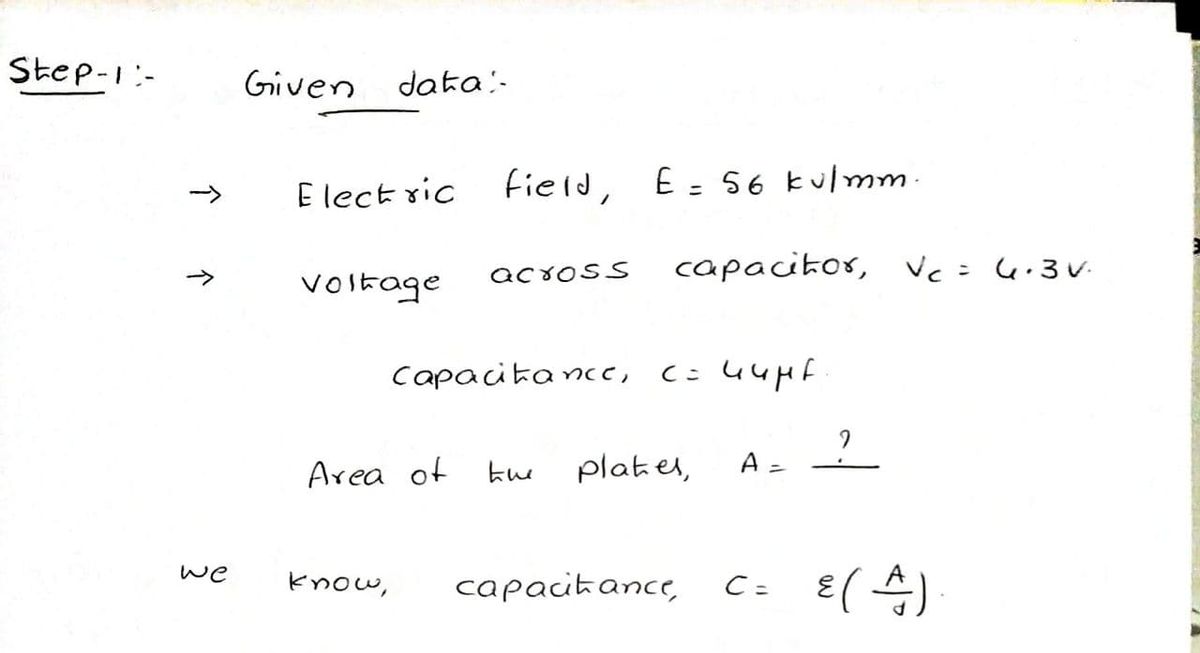 Step-1:- Given data:-
→ Electric field, E = 56 kv/mm.
→ voltage across capacitor, Vc = 4.3v.
capacitance, c = 44μf.
Area of the plates, A = ?
we know, capacitance, C = ε(A/d).